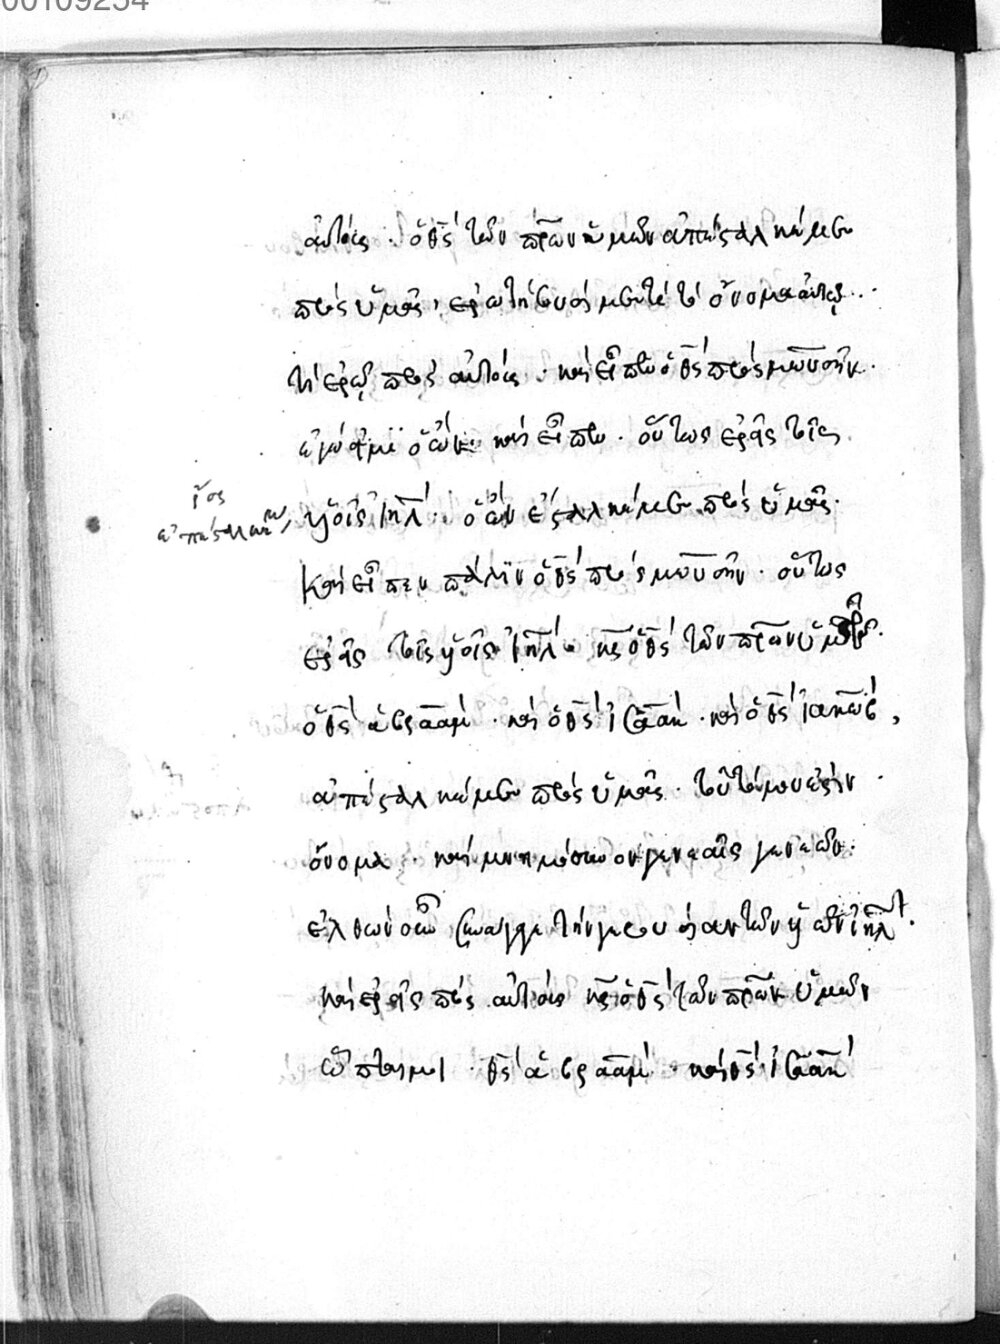 00109254
αὐτοὺς · ὁ θς τῶν πρων ἡμῶν ἀπέσταλκέ με
πρὸς ὑμᾶς, ἐρωτήσουσί με τί τὸ ὄνομα αὐτῷ ·
τί ἐρῶ πρὸς αὐτούς · καὶ εἶπεν ὁ θς πρὸς μωυσῆν ·
ἐγώ εἰμι ὁ ὤν · καὶ εἶπεν · οὕτως ἐρεῖς τοῖς
υἱοῖς ιηλ · ὁ ὢν ἀπέσταλκέ με πρὸς ὑμᾶς ·
καὶ εἶπεν πάλιν ὁ θς πρὸς μωυσῆν · οὕτως
ἐρεῖς τοῖς υἱοῖς ιηλ · κς ὁ θς τῶν πρων ὑμῶν ·
ὁ θς ἀβρααμ · καὶ ὁ θς ἰσαακ · καὶ ὁ θς ἰακωβ,
ἀπέσταλκέ με πρὸς ὑμᾶς · τοῦτό μου ἐστὶν
ὄνομα · καὶ μνημόσυνον γενεαῖς γενεῶν ·
ἐλθὼν οὖν συνάγαγε τὴν γερουσίαν τῶν υἱῶν ιηλ ·
καὶ ἐρεῖς πρὸς αὐτούς κς ὁ θς τῶν πρων ὑμῶν
ὦπταί μοι · θς ἀβρααμ · καὶ θς ἰσαακ